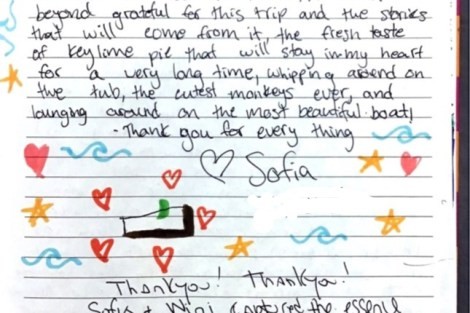 beyond grateful for this trip and the stories
that will come from it, the fresh taste
of keylime pie that will stay in my heart
for a very long time, whipping around on
the tub, the cutest monkeys ever, and
lounging around on the most beautiful boat!
- Thank you for every thing
♡ Sofia
Thankyou! Thankyou!
Sofia & Wini captured the essence